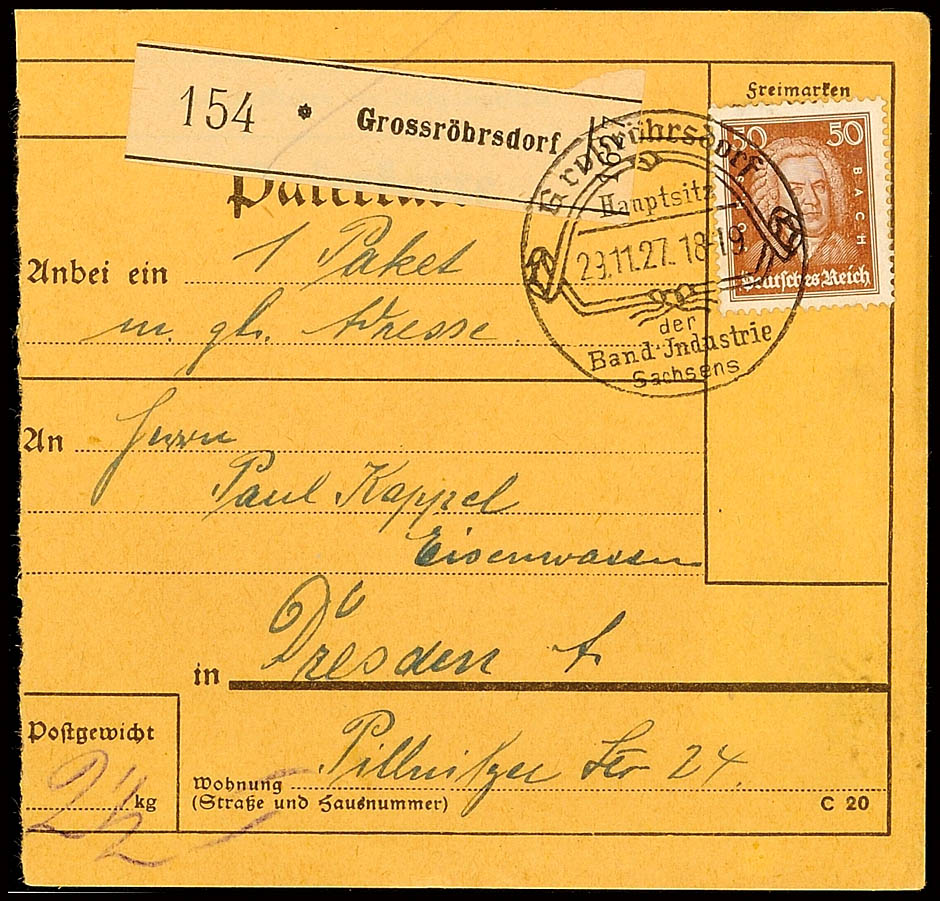 154 * Grossröhrsdorf
Freimarken
50 50
BACH
Deutsches Reich
Großröhrsdorf
Hauptsitz
29.11.27. 18-19
der
Band-Industrie
Sachsens
Anbei ein 1 Paket
m. gl. Adresse
An Herrn
Paul Kappel
Eisenwaren
in Dresden A.
Postgewicht
2 1/2 kg
Pillnitzer Str 24.
Wohnung
(Straße und Hausnummer)
C 20